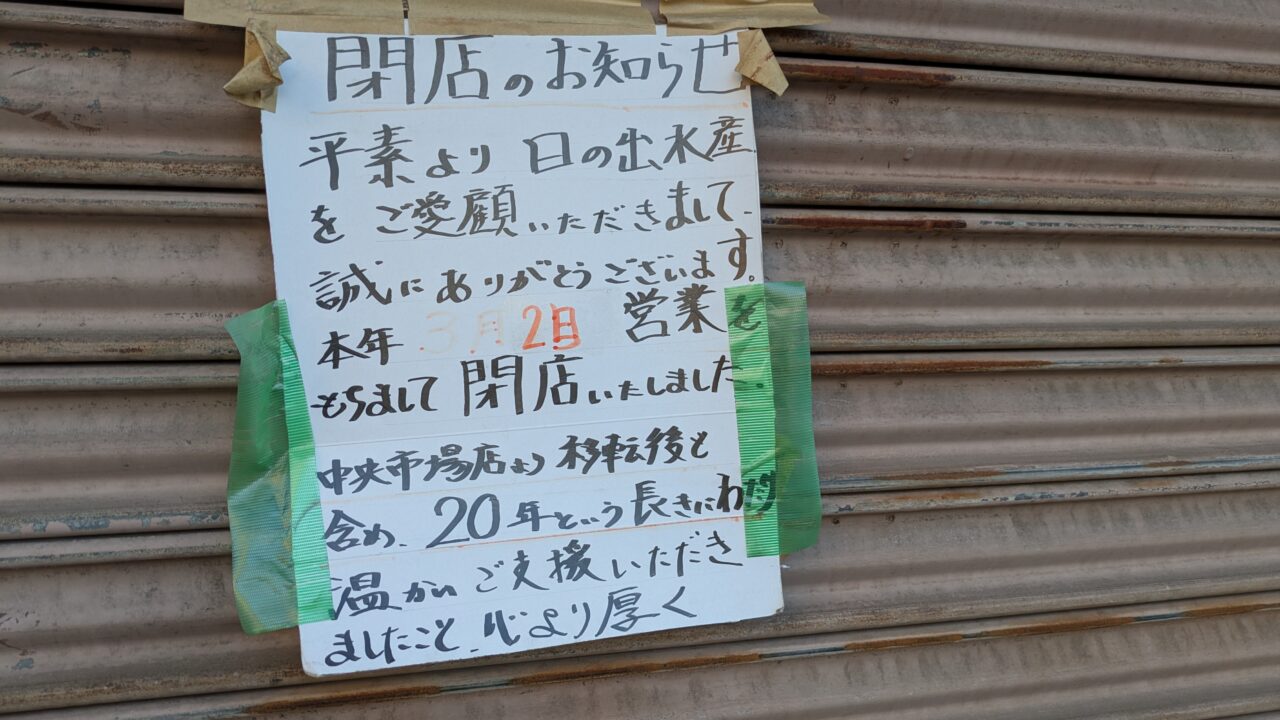 閉店のお知らせ
平素より 日の出水産
を ご愛顧いただきまして、
誠にありがとうございます。
本年 3月2日 営業を
もちまして 閉店いたしました
中央市場店より 移転後と
含め、20年という長きにわたり
温かいご支援いただき
ましたこと、心より厚く